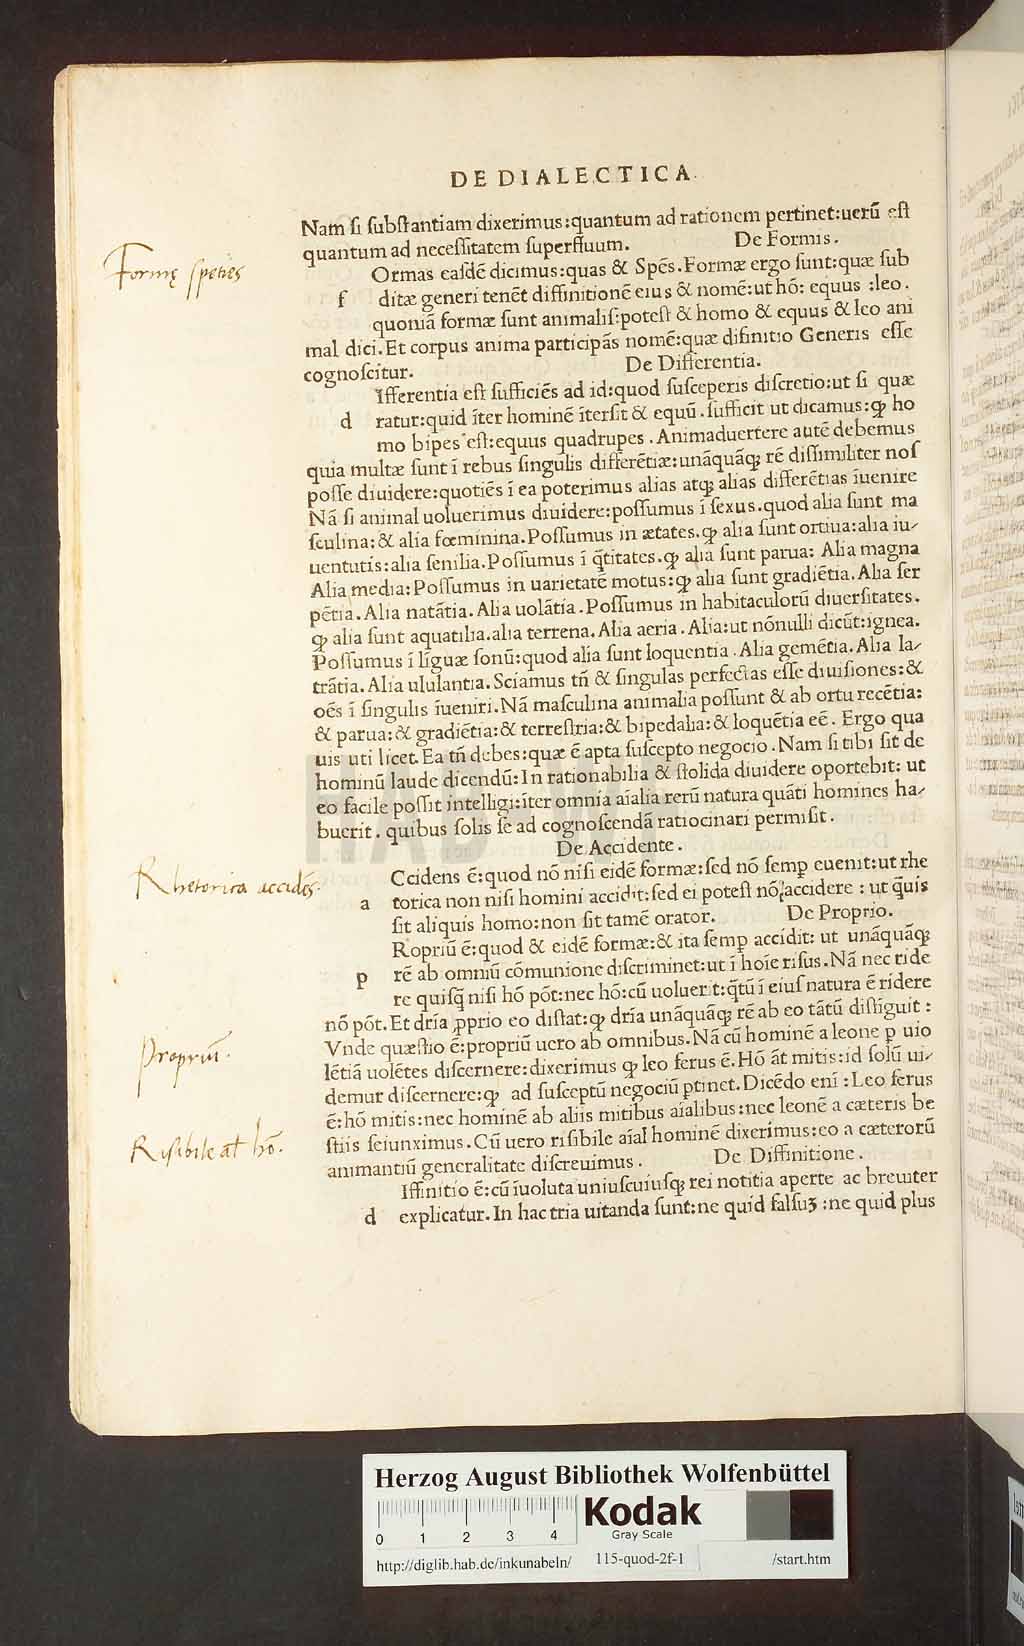 DE DIALECTICA.
Nam si substantiam dixerimus:quantum ad rationem pertinet:uerū est
quantum ad necessitatem superfluum. De Formis.
Formę speties
Ormas easdē dicimus:quas & Spēs.Formæ ergo sunt:quæ sub
f ditæ generi tenēt diffinitionē eius & nomē:ut hō: equus :leo.
quoniā formæ sunt animalis:potest & homo & equus & leo ani
mal dici.Et corpus anima participās nomē:quæ difinitio Generis esse
cognoscitur. De Differentia.
Ifferentia est sufficiēs ad id:quod susceperis discretio:ut si quæ
d ratur:quid īter hominē ītersit & equū.sufficit ut dicamus:ꝙ ho
mo bipes est:equus quadrupes.Animaduertere autē debemus
quia multæ sunt ī rebus singulis differētiæ:unāquāqꝫ rē dissimiliter nos
posse diuidere:quotiēs ī ea poterimus alias atqꝫ alias differētias īuenire
Nā si animal uoluerimus diuidere:possumus ī sexus.quod alia sunt ma
sculina:& alia fœminina.Possumus in ætates.ꝙ alia sunt ortiua:alia iu-
uentutis:alia senilia.Possumus ī q̄titates.ꝙ alia sunt parua: Alia magna
Alia media:Possumus in uarietatē motus:ꝙ alia sunt gradiētia.Alia ser
pētia.Alia natātia.Alia uolātia.Possumus in habitaculorū diuersitates.
ꝙ alia sunt aquatilia.alia terrena.Alia aeria.Alia:ut nōnulli dicūt:ignea.
Possumus ī līguæ sonū:quod alia sunt loquentia.Alia gemētia.Alia la-
trātia.Alia ululantia.Sciamus tn̄ & singulas perfectas esse diuisiones:&
oēs ī singulis īueniri.Nā masculina animalia possunt & ab ortu recētia:
& parua:& gradiētia:& terrestria:& bipedalia:& loquētia eē. Ergo qua
uis uti licet.Ea tn̄ debes:quæ ē apta suscepto negocio.Nam si tibi sit de
hominū laude dicendū:In rationabilia & stolida diuidere oportebit: ut
eo facile possit intelligi:īter omnia aīalia rerū natura quāti homines ha-
buerit. quibus solis se ad cognoscendā ratiocinari permisit.
De Accidente.
Rhetorica accidēs.
Ccidens ē:quod nō nisi eidē formæ:sed nō semꝑ euenit:ut rhe
a torica non nisi homini accidit:sed ei potest nō accidere : ut q̄uis
sit aliquis homo:non sit tamē orator. De Proprio.
Ropriū ē:quod & eidē formæ:& ita semꝑ accidit: ut unāquāqꝫ
p rē ab omniū cōmunione discriminet:ut ī hoīe risus.Nā nec ride
re quisq̄ nisi hō pōt:nec hō:cū uoluerit:q̄tū ī eius natura ē ridere
nō pōt.Et dr̄ia ꝓprio eo distat:ꝙ dr̄ia unāquāqꝫ rē ab eo tātū distīguit :
Propriū.
Vnde quæstio ē:propriū uero ab omnibus.Nā cū hominē a leone ꝑ uio
lētiā uolētes discernere:dixerimus ꝙ leo ferus ē.Hō āt mitis:id solū ui-
demur discernere:ꝙ ad susceptū negociū ꝑtinet.Dicēdo enī :Leo ferus
ē:hō mitis:nec hominē ab aliis mitibus aīalibus:nec leonē a cæteris be
Risibile aīal hō.
stiis seiunximus.Cū uero risibile aīal hominē dixerimus:eo a cæterorū
animantiū generalitate discreuimus. De Diffinitione.
Iffinitio ē:cū īuoluta uniuscuiusqꝫ rei notitia aperte ac breuiter
d explicatur.In hac tria uitanda sunt:ne quid falsuꝫ :ne quid plus
HAB-W
Herzog August Bibliothek Wolfenbüttel
0 1 2 3 4
Kodak
Gray Scale
http://diglib.hab.de/inkunabeln/ 115-quod-2f-1 /start.htm